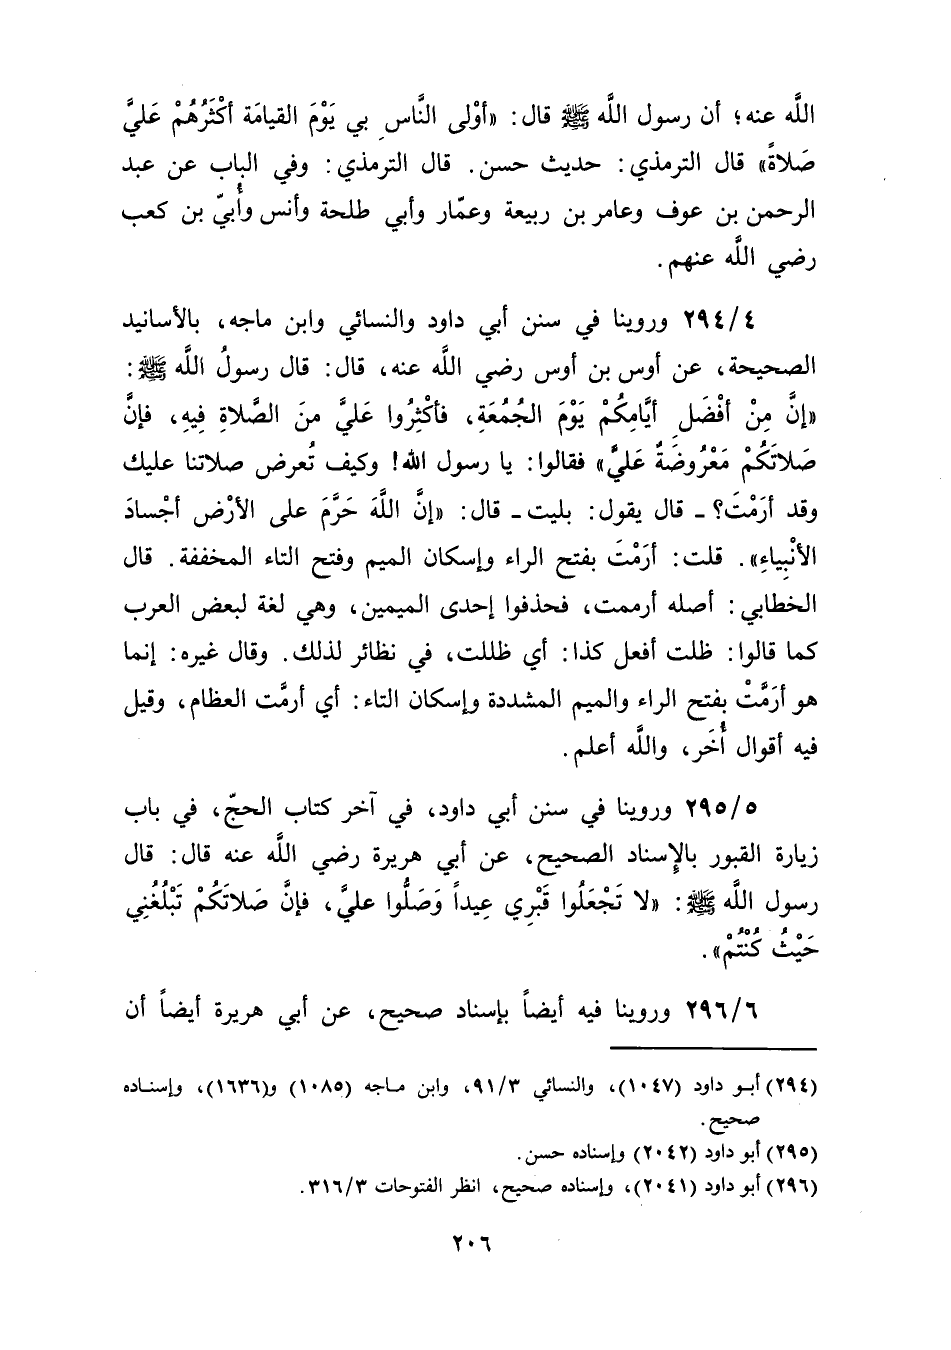 اللَّه عنه؛ أن رسول اللَّه ﷺ قال: «أَوْلى النَّاسِ بي يَوْمَ القيامَة أكْثَرُهُمْ عَليَّ
صَلاةً» قال الترمذي: حديث حسن. قال الترمذي: وفي الباب عن عبد
الرحمن بن عوف وعامر بن ربيعة وعمّار وأبي طلحة وأنس وأُبيّ بن كعب
رضي اللَّه عنهم.
٢٩٤/٤ وروينا في سنن أبي داود والنسائي وابن ماجه، بالأسانيد
الصحيحة، عن أوس بن أوس رضي اللَّه عنه، قال: قال رسولُ اللَّه ﷺ:
«إنَّ مِنْ أفْضَلِ أيَّامِكُمْ يَوْمَ الجُمُعَةِ، فأكْثِرُوا عَليَّ منَ الصَّلاةِ فِيهِ، فإنَّ
صَلاتَكُمْ مَعْرُوضَةٌ عَليَّ» فقالوا: يا رسول الله! وكيف تُعرض صلاتنا عليك
وقد أرَمْتَ؟ ـ قال يقول: بليت ـ قال: «إنَّ اللَّهَ حَرَّمَ على الأرْضِ أجْسادَ
الأنْبِياءِ». قلت: أرَمْتَ بفتح الراء وإسكان الميم وفتح التاء المخففة. قال
الخطابي: أصله أرممت، فحذفوا إحدى الميمين، وهي لغة لبعض العرب
كما قالوا: ظلت أفعل كذا: أي ظللت، في نظائر لذلك. وقال غيره: إنما
هو أرَمَّتْ بفتح الراء والميم المشددة وإسكان التاء: أي أرمَّت العظام، وقيل
فيه أقوال أُخَر، واللَّه أعلم.
٢٩٥/٥ وروينا في سنن أبي داود، في آخر كتاب الحجّ، في باب
زيارة القبور بالإِسناد الصحيح، عن أبي هريرة رضي اللَّه عنه قال: قال
رسول اللَّه ﷺ: «لا تَجْعَلُوا قَبْرِي عِيداً وَصَلُّوا عليَّ، فإنَّ صَلاتَكُمْ تَبْلُغُنِي
حَيْثُ كُنْتُمْ».
٢٩٦/٦ وروينا فيه أيضاً بإسناد صحيح، عن أبي هريرة أيضاً أن
(٢٩٤) أبو داود (١٠٤٧)، والنسائي ٩١/٣، وابن ماجه (١٠٨٥) و(١٦٣٦)، وإسناده
صحيح.
(٢٩٥) أبو داود (٢٠٤٢) وإسناده حسن.
(٢٩٦) أبو داود (٢٠٤١)، وإسناده صحيح، انظر الفتوحات ٣١٦/٣.
٢٠٦